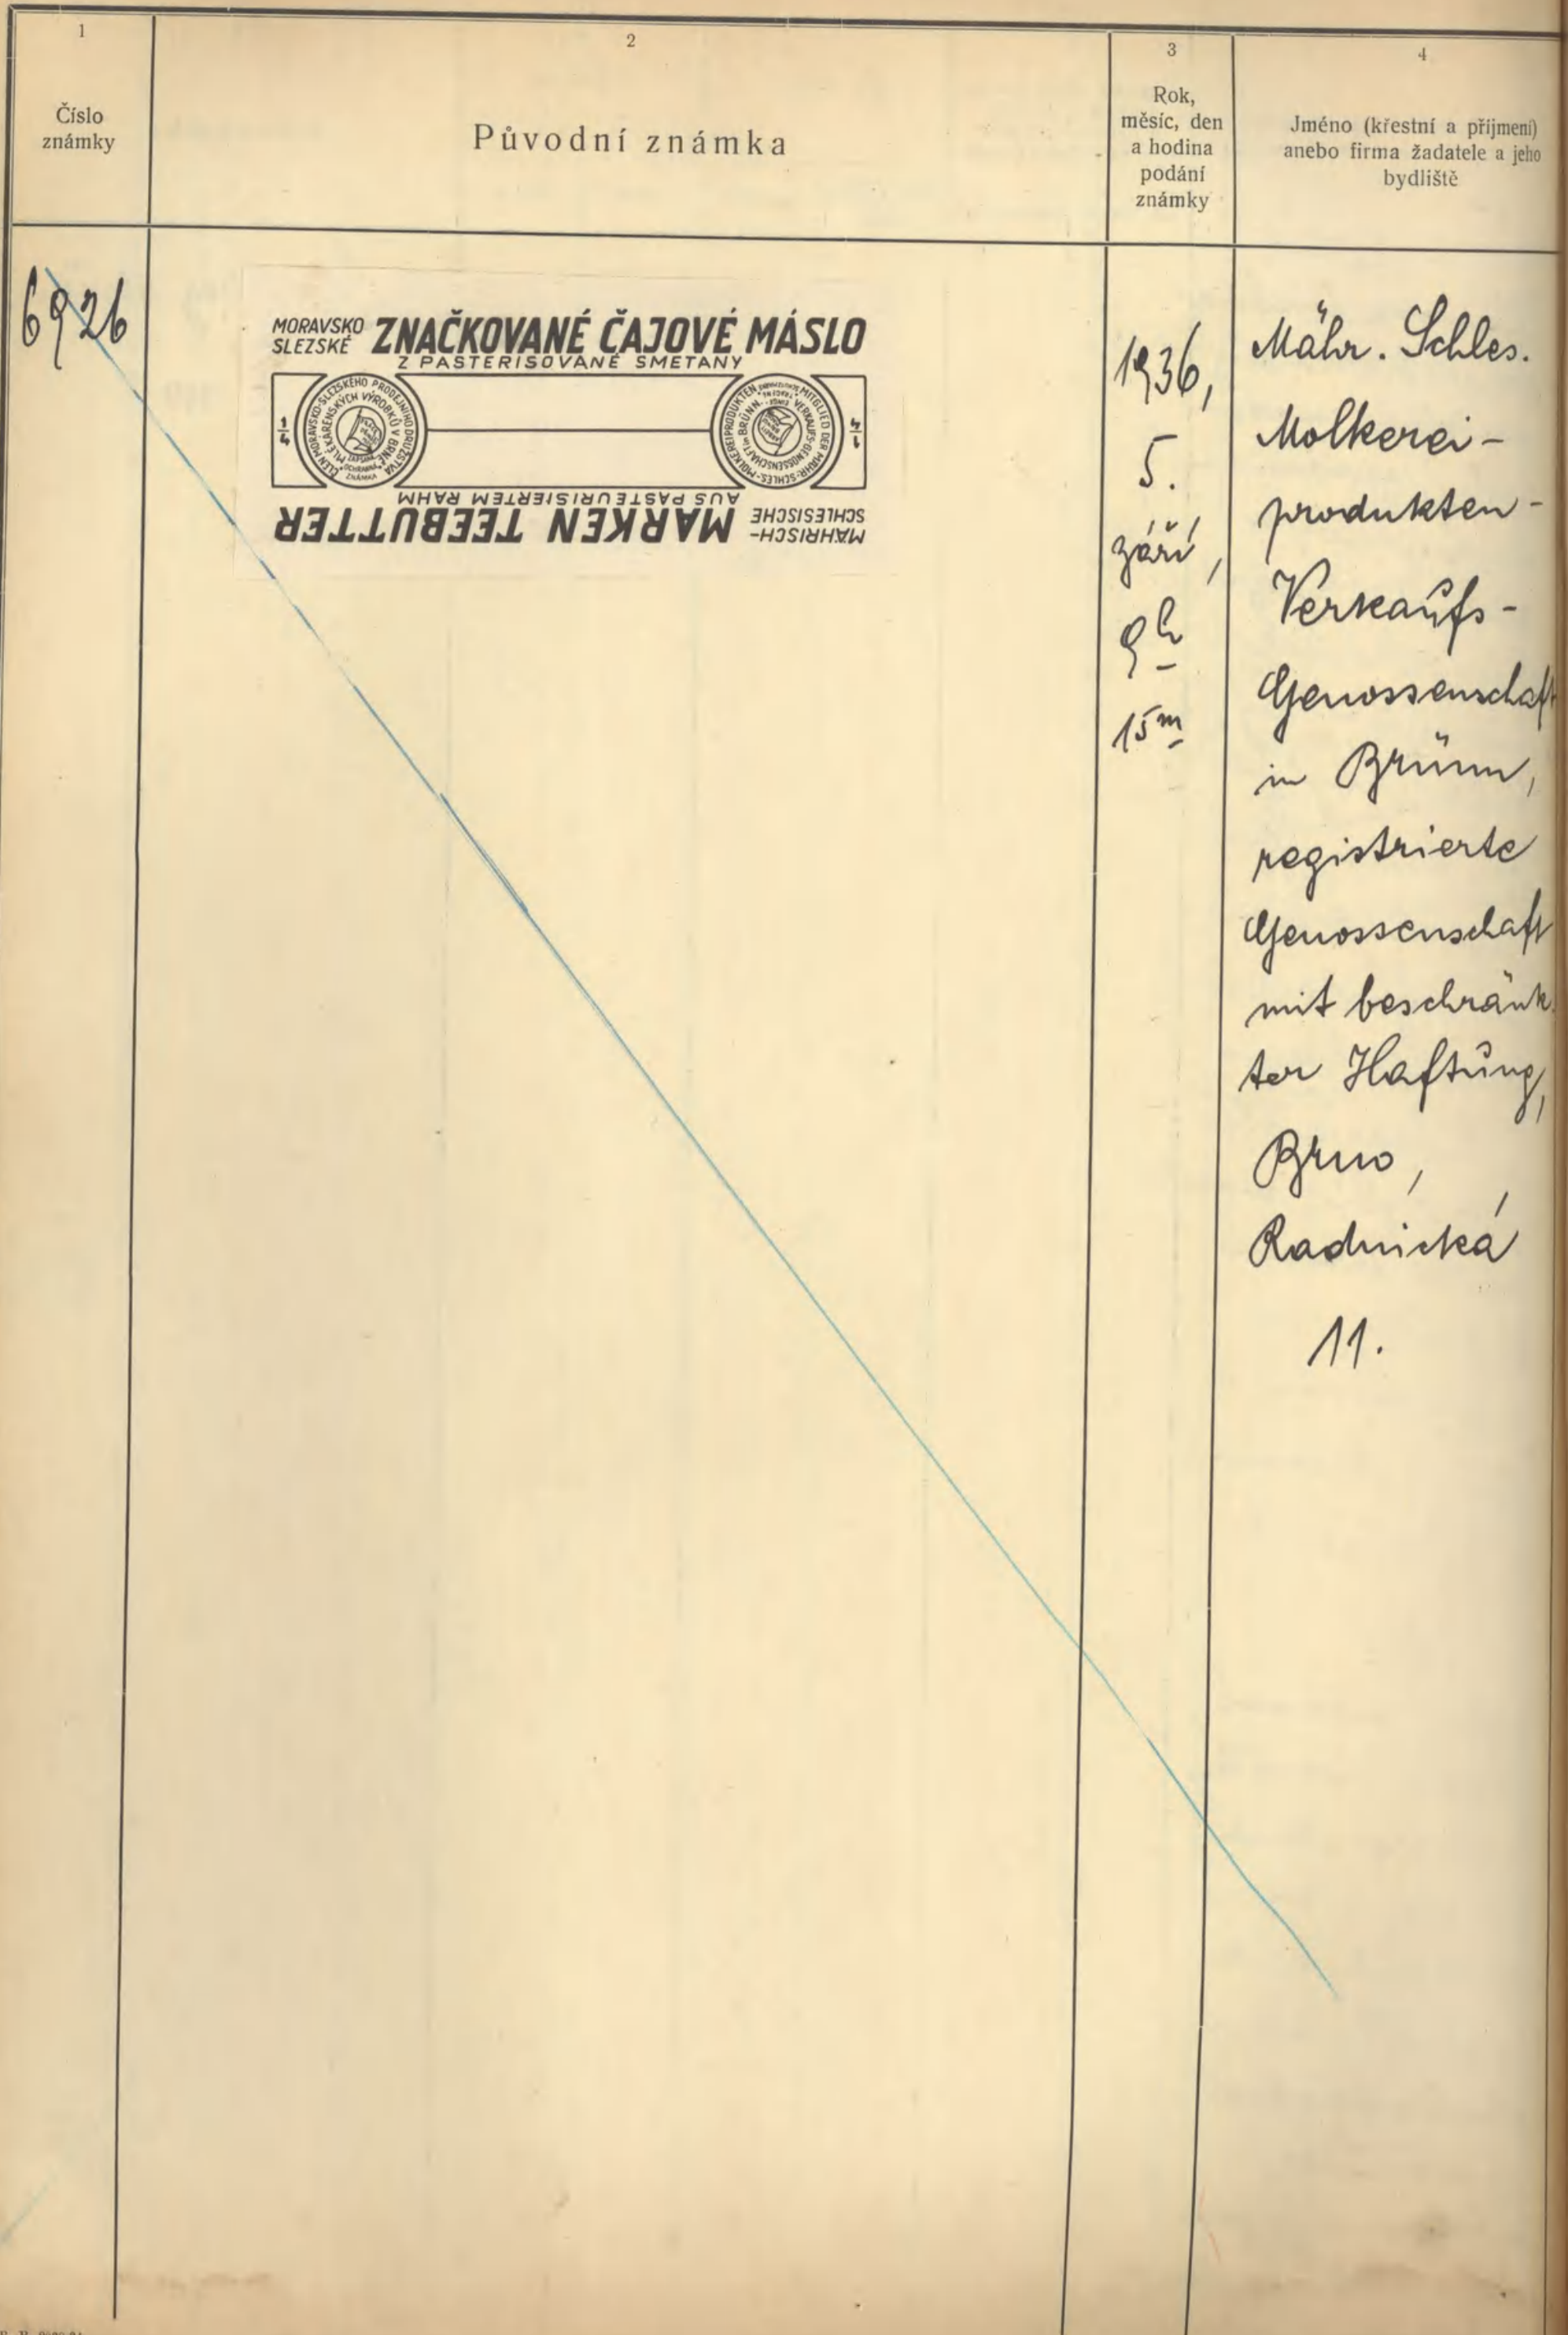 1
Číslo
známky
2
Původní známka
3
Rok,
měsíc, den
a hodina
podání
známky
4
Jméno (křestní a příjmení)
anebo firma žadatele a jeho
bydliště
6926
MORAVSKO
SLEZSKÉ
ZNAČKOVANÉ ČAJOVÉ MÁSLO
Z PASTERISOVANÉ SMETANY
1/4
ČLEN MORAVSKO-SLEZSKÉHO PRODEJNÍHO DRUŽSTVA
MLÉKÁRENSKÝCH VÝROBKŮ V BRNĚ
ZAPSANÁ
OCHRANNÁ
ZNÁMKA
MITGLIED DER MÄHR.-SCHLES.-MOLKEREIPRODUKTEN
VERKAUFS-GENOSSENSCHAFT IN BRÜNN
1/4
MÄHRISCH-
SCHLESISCHE
MARKEN TEEBUTTER
AUS PASTEURISIERTEM RAHM
1936,
5.
září,
9h
15m
Mähr. Schles.
Molkerei-
produkten-
Verkaufs-
Genossenschaft
in Brünn,
registrierte
Genossenschaft
mit beschränk
ter Haftung,
Brno,
Radnická
11.